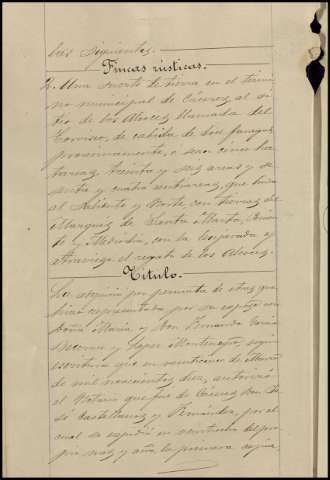 les siguientes.
Fincas rústicas.
Una suerte de tierra en el térmi
no municipal de Cáceres al si
tio de los Arcos llamada del
de cabida de dos fanegas
proximamente, ó sea cinco hec
tareas, treinta y seis areas y se
senta y cuatro centiareas, que linda
al Saliente y Norte, con tierras del
Marqués de Santa Marta, Ponien
te y Mediodía, con la
atraviesa el regato de los
Título.
La adquirió por permuta de otras que
hizo representada por su esposo con
Doña María y Don Fernando García
Becerra y Lopez Montenegro, según
escritura que en veinticinco de Marzo
de mil novecientos diez, autorizó
el Notario que fue de Cáceres Don Jo
sé Castellanos y Fernández, por el
cual se expidió en veintiocho del pro
pio mes y año, la primera copia,